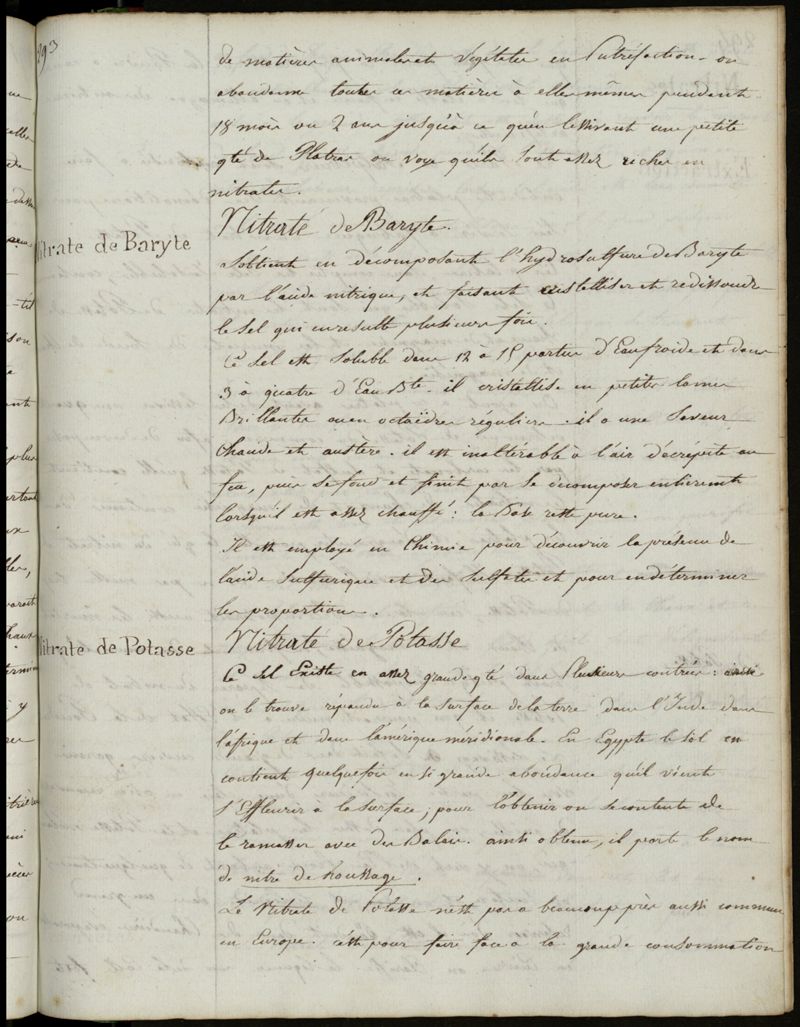 293
de matières animales et végétales en Putréfaction. on
abandonne toutes ces matières à elles mêmes pendant
18 mois ou 2 ans jusqu'à ce qu'en lessivant une petite
qté de Platras on voye qu'ils sont assez riches en
nitrates.
Nitrate de Baryte
Nitrate de Baryte.
S'obtient en décomposant l'hydrosulfure de Baryte
par l'acide nitrique, et faisant cristalliser et redissoudre
le sel qui en resulte plusieurs fois.
Ce sel est soluble dans 12 à 15 parties d'Eau froide et dans
3 à quatre d'Eau Bte. il cristallise en petites lames
Brillantes ou en octaëdres réguliers. il a une Saveur
chaude et austère. il est inaltérable à l'air décrépite au
feu, puis se fond et finit par se décomposer entièrement
lorsqu'il est assez chauffé : la Base reste pure.
Il est employé en Chimie pour découvrir la présence de
l'acide sulfurique et des sulfates et pour en déterminer
les proportions.
Nitrate de Potasse
Nitrate de Potasse
Ce Sel Existe en assez grande qté dans Plusieurs contrées : ainsi
on le trouve répandu à la surface de la terre dans l'Inde dans
l'afrique et dans l'amérique méridionale. En Egypte le sol en
contient quelquefois en si grande abondance qu'il vient
s'Effleurir à la surface ; pour l'obtenir on se contente de
le ramasser avec des Balais. ainsi obtenu, il porte le nom
de nitre de houssage.
Le Nitrate de Potasse n'est pas à beaucoup près aussi commun
en Europe. c'est pour faire face à la grande consommation